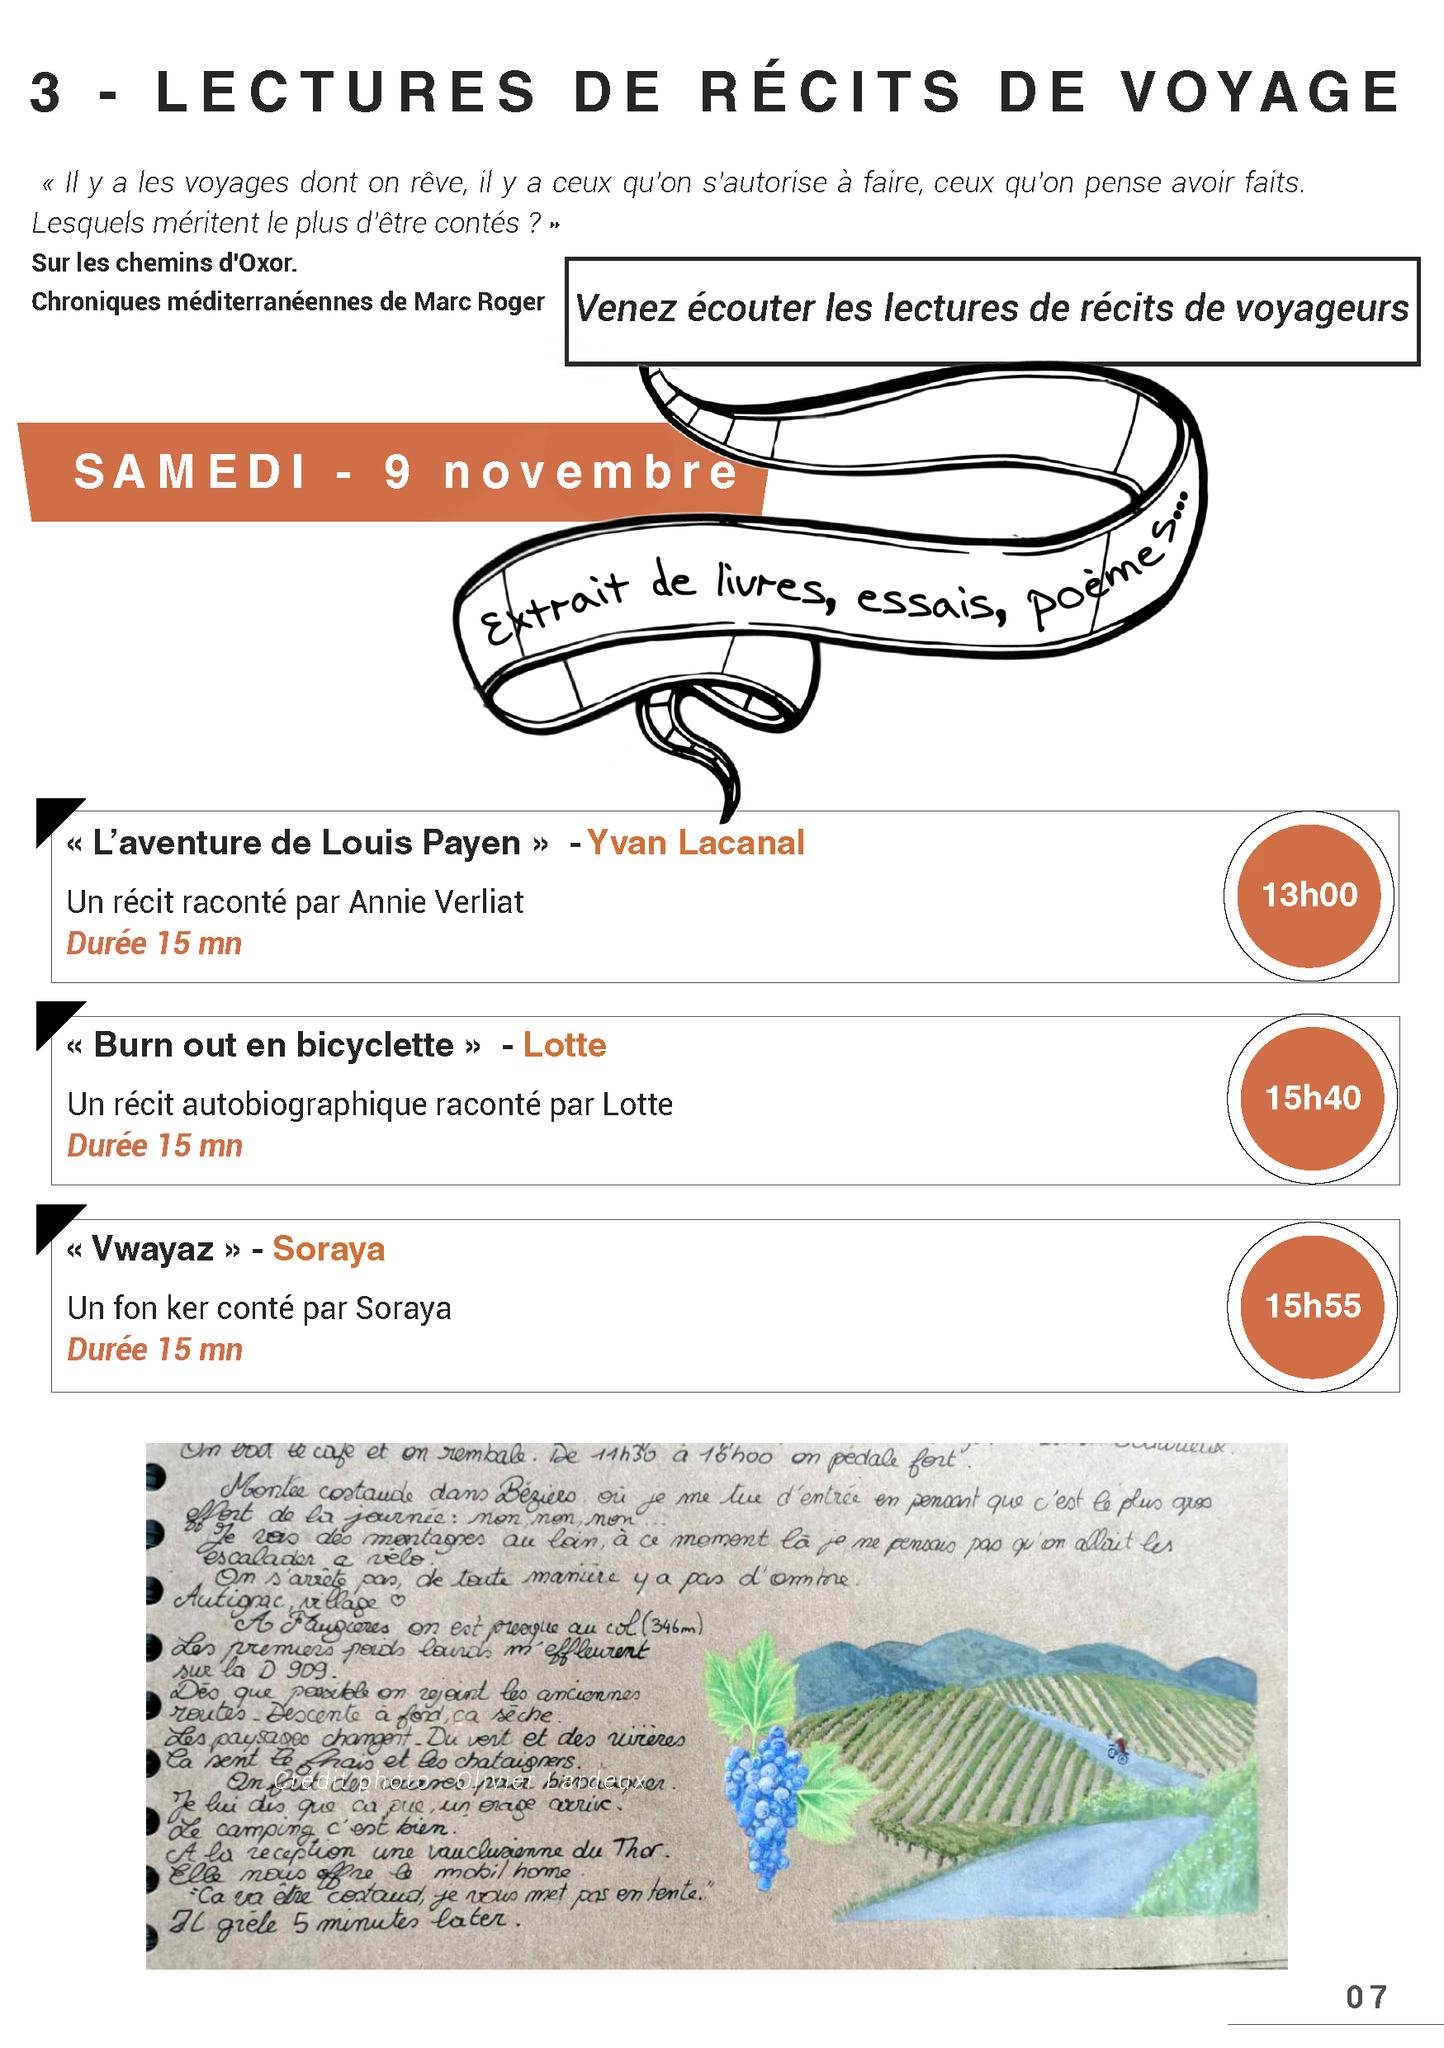 3 - LECTURES DE RÉCITS DE VOYAGE
« Il y a les voyages dont on rêve, il y a ceux qu'on s'autorise à faire, ceux qu'on pense avoir faits.
Lesquels méritent le plus d'être contés ? »
Sur les chemins d'Oxor.
Chroniques méditerranéennes de Marc Roger
Venez écouter les lectures de récits de voyageurs
SAMEDI - 9 novembre
Extrait de livres, essais, poèmes...
« L'aventure de Louis Payen » - Yvan Lacanal
Un récit raconté par Annie Verliat
Durée 15 mn
13h00
« Burn out en bicyclette » - Lotte
Un récit autobiographique raconté par Lotte
Durée 15 mn
15h40
« Vwayaz » - Soraya
Un fon ker conté par Soraya
Durée 15 mn
15h55
On boit le café et on rembale. De 11h30 à 16h00 on pédale fort.
Montée costaude dans Béziers où je me tue d'entrée en pensant que c'est le plus gros
effort de la journée : non, non, non...
Je vois des montagnes au loin, à ce moment là je ne pensais pas qu'on allait les
escalader a vélo.
On s'arrête pas, de toute manière y a pas d'ombre.
Autignac, village ♡
A Faugières on est presque au col (346m)
Les premiers poids lourds m'effleurent
sur la D 909.
Dès que possible on rejoint les anciennes
routes. Descente à fond, ca sèche.
Les paysages changent. Du vert et des rivières
Ca sent le frais et les chataigners.
On
Crédit photo : Olivier Lardeux
Je lui dis que ca pue, un orage arrive.
Le camping c'est bien.
A la reception une vauclusienne du Thor.
Elle nous offre le mobil home.
"Ca va être costaud, je vous met pas en tente."
Il grèle 5 minutes later.
07